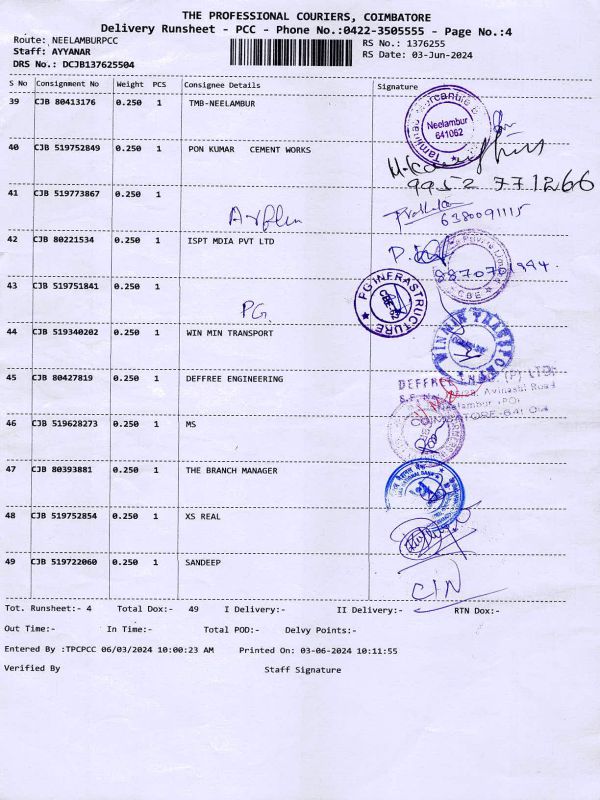 THE PROFESSIONAL COURIERS, COIMBATORE
Delivery Runsheet - PCC - Phone No.:0422-3505555 - Page No.:4
Route: NEELAMBURPCC
RS No.: 1376255
Staff: AYYANAR
RS Date: 03-Jun-2024
DRS No.: DCJB137625504
S No Consignment No Weight PCS Consignee Details Signature
39 CJB 80413176 0.250 1 TMB-NEELAMBUR
Neelambur
641062
40 CJB 519752849 0.250 1 PON KUMAR CEMENT WORKS
9952 771266
41 CJB 519773867 0.250 1
6380091115
42 CJB 80221534 0.250 1 ISPT MDIA PVT LTD
8870701994
CBE
43 CJB 519751841 0.250 1
PG
PG INFRASTRUCTURE
44 CJB 519340202 0.250 1 WIN MIN TRANSPORT
WINMIN TRANSPORT
45 CJB 80427819 0.250 1 DEFFREE ENGINEERING
DEFFREE ENGG. (P) LTD.
Avinashi Road
Neelambur (PO)
COIMBATORE-641 014
46 CJB 519628273 0.250 1 MS
47 CJB 80393881 0.250 1 THE BRANCH MANAGER
48 CJB 519752854 0.250 1 XS REAL
49 CJB 519722060 0.250 1 SANDEEP
CIN
Tot. Runsheet:- 4 Total Dox:- 49 I Delivery:- II Delivery:- RTN Dox:-
Out Time:- In Time:- Total POD:- Delvy Points:-
Entered By :TPCPCC 06/03/2024 10:00:23 AM Printed On: 03-06-2024 10:11:55
Verified By Staff Signature